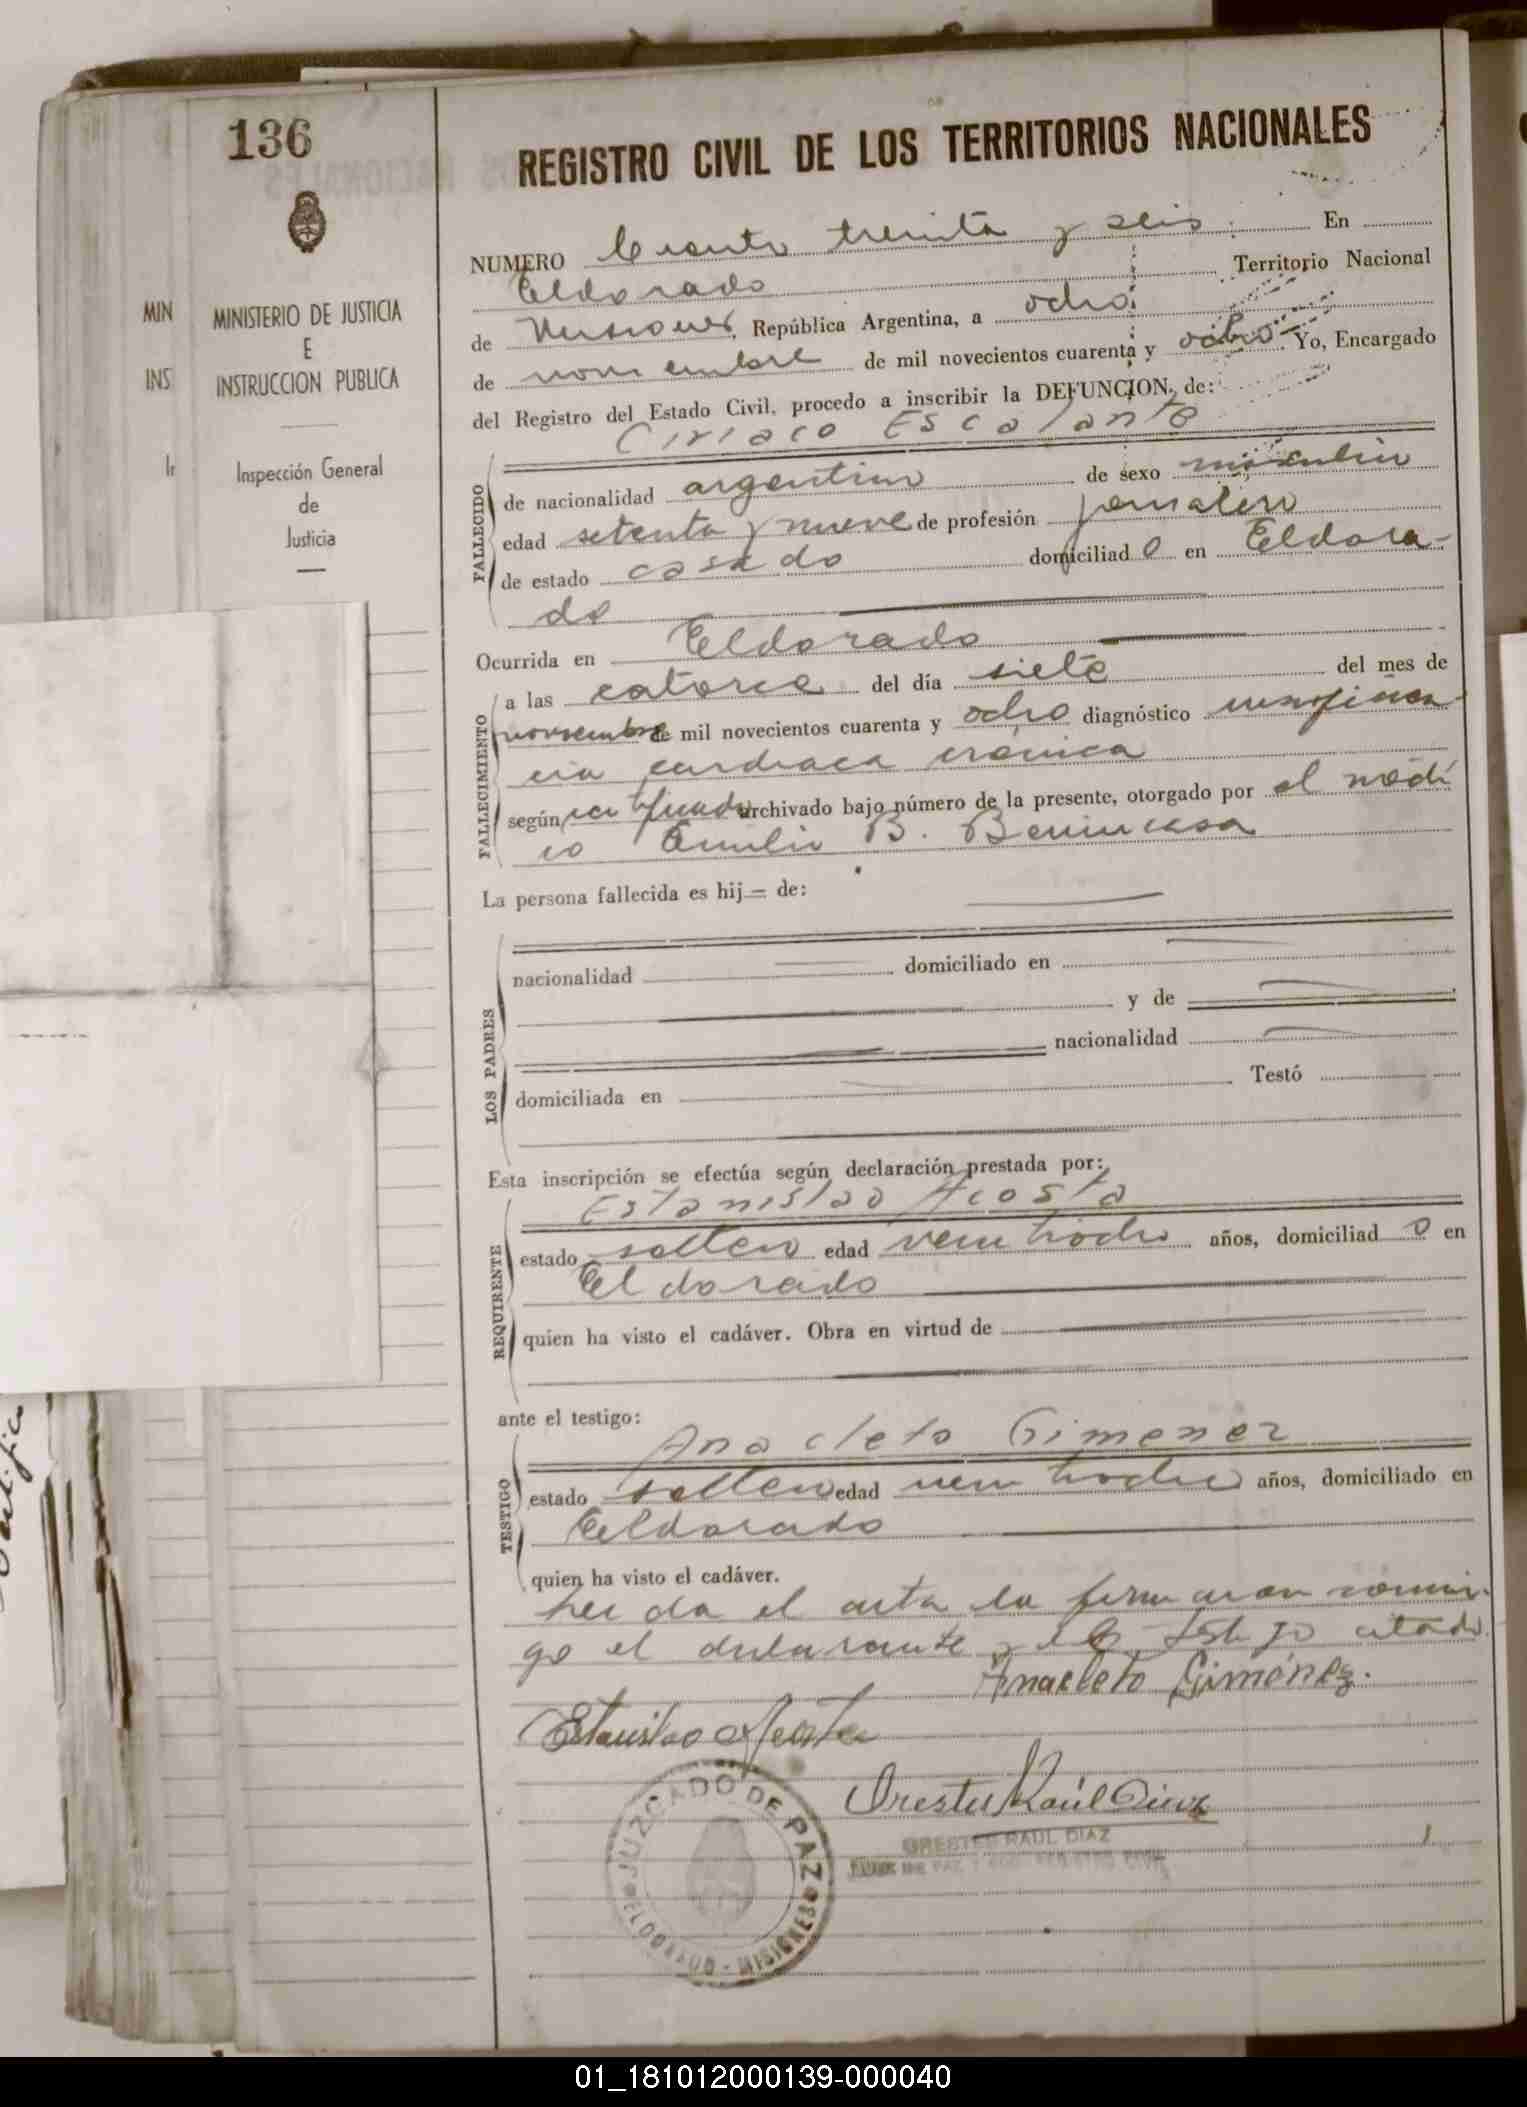 136
REGISTRO CIVIL DE LOS TERRITORIOS NACIONALES
MINISTERIO DE JUSTICIA
E
INSTRUCCION PUBLICA
Inspección General
de
Justicia
MIN
INS
NUMERO Ciento treinta y seis En
Eldorado Territorio Nacional
de Misiones, República Argentina, a ocho
de noviembre de mil novecientos cuarenta y ocho. Yo, Encargado
del Registro del Estado Civil, procedo a inscribir la DEFUNCION, de:
Ciriaco Escalante
FALLECIDO
de nacionalidad argentino de sexo masculino
edad setenta y nueve de profesión jornalero
de estado casado domiciliado en Eldora-
do
Ocurrida en Eldorado
FALLECIMIENTO
a las catorce del día siete del mes de
noviembre de mil novecientos cuarenta y ocho diagnóstico insuficien-
cia cardiaca crónica
según certificado archivado bajo número de la presente, otorgado por el médi
co Emilio B. Benincasa
La persona fallecida es hij= de:
LOS PADRES
nacionalidad domiciliado en
y de
nacionalidad
domiciliada en Testó
Esta inscripción se efectúa según declaración prestada por:
Estanislao Acosta
REQUIRENTE
estado soltero edad veintiocho años, domiciliado en
Eldorado
quien ha visto el cadáver. Obra en virtud de
ante el testigo:
Anacleto Gimenez
TESTIGO
estado soltero edad veintiocho años, domiciliado en
Eldorado
quien ha visto el cadáver.
Leida el acta la firmaron conmi-
go el declarante y el testigo citado.
Anacleto Giménez.
Estanislao Acosta
Orestes Raúl Diaz
ORESTES RAUL DIAZ
JUEZ DE PAZ Y REGISTRO CIVIL
JUZGADO DE PAZ
ELDORADO - MISIONES
01_181012000139-000040